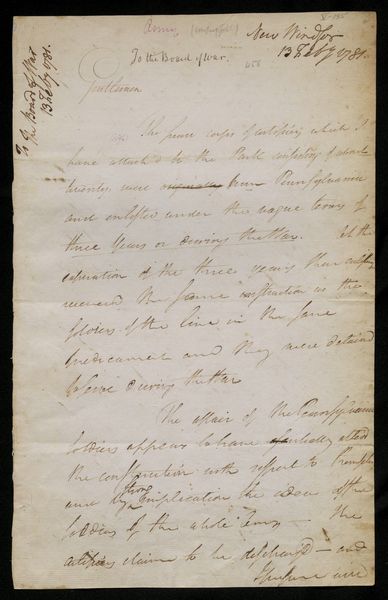 Army
New Windsor
13 Feby 1781.
To the Board of War.
To the Board of War
13 Feby 1781.
Gentlemen
The corps of artificers which I
have attach'd to the Park consisting of about
twenty, were originally from Pennsylvania
and inlisted under the vague terms of
three Years or during the War. At the
expiration of the three years their inlisting
received the same construction as the
soldiers of the line in the same
predicament and they were detained
to serve during the War
The affair of the Pennsylvania
soldiers appears to have essentially altered
the construction with respect to themselves
and by implication the idea of the
soldiers of the whole Army — The
artificers claim to be discharged — and